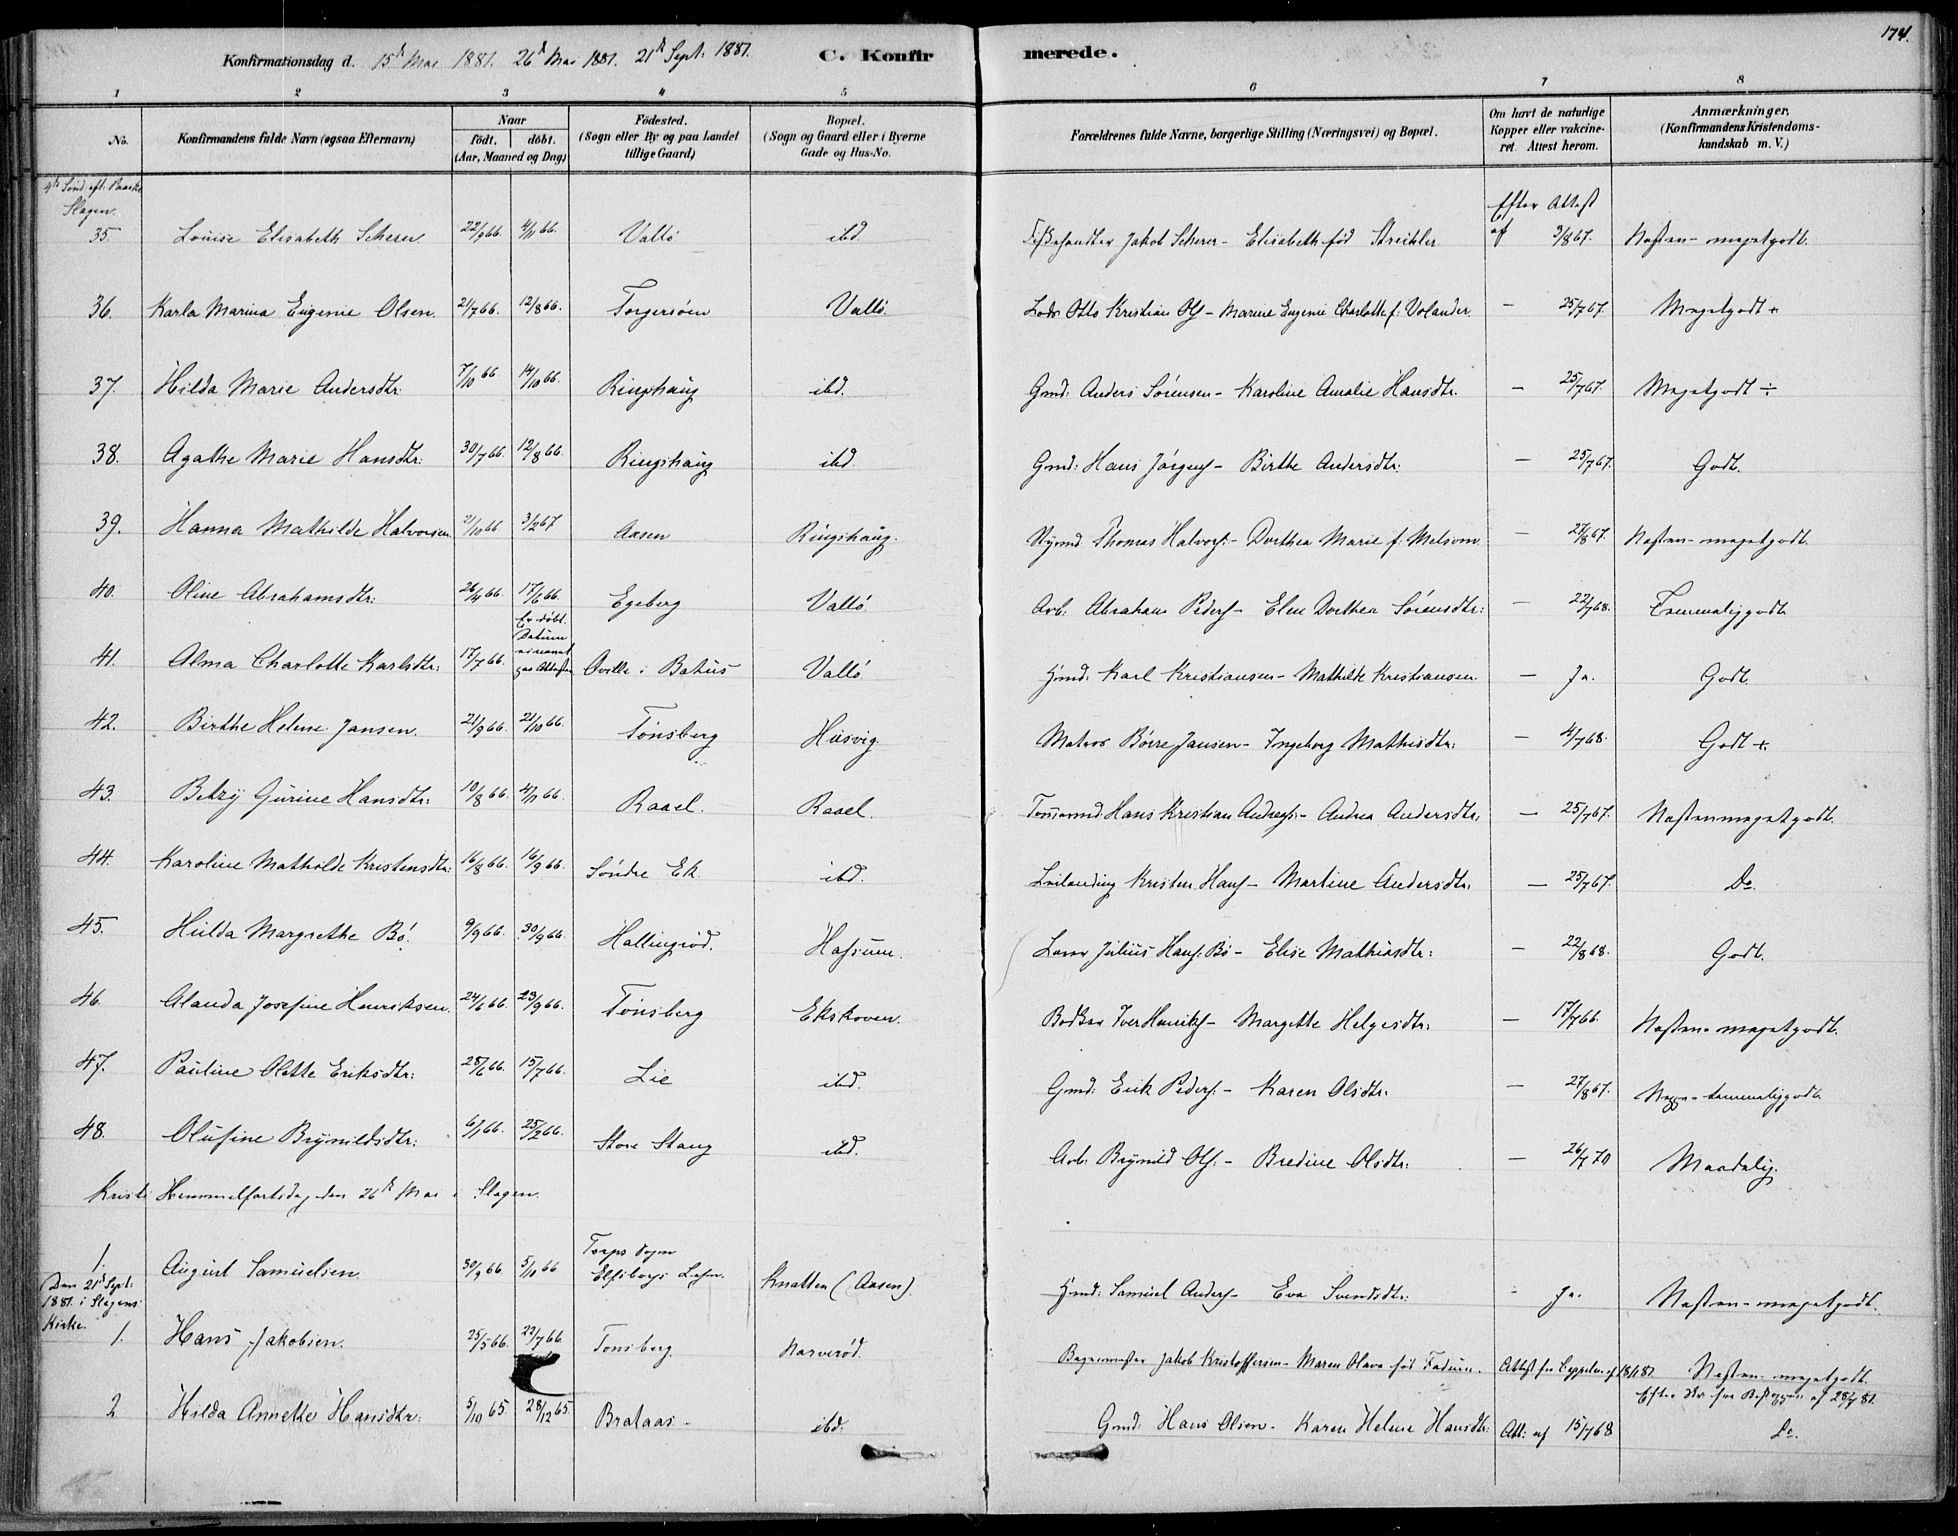 174.
Konfirmationsdag d. 15de Mai 1881. 26de Mai 1881. 21de Sept. 1881. C. Konfirmerede.
1 2 3 4 5 6 7 8
No. Konfirmandens fulde Navn (ogsaa Efternavn) Naar födt. döbt. (Aar, Maaned og Dag) Födested. (Sogn eller By og paa Landet tillige Gaard) Bopæl. (Sogn og Gaard eller i Byerne Gade og Hus-No. Forældrenes fulde Navne, borgerlige Stilling (Næringsvei) og Bopæl. Om havt de naturlige Kopper eller vakcineret. Attest herom. Anmærkninger. (Konfirmandens Kristendomskundskab m. V.)
4de Sönd. eft. Paaske
Slagen.
35. Louise Elisabeth Scherer 22/9 66. 4/11 66. Vallö ibd. Jakob Scherer - Elisabeth fød Streibler Efter Attest af 3/8 67. Næsten-megetgodt.
36. Karla Marina Eugenie Olsen. 21/7 66. 12/8 66. Torgersöen Vallö. Lods Otto Kristian Ols. - Marine Eugenie Charlotte f. Volander. — 25/7 67. Megetgodt +
37. Hilda Marie Andersdtr. 7/10 66. 14/10 66. Ringshaug ibd. Gmd: Anders Sörensen - Karoline Amalie Hansdtr. — 25/7 67. Megetgodt ÷
38. Agathe Marie Hansdtr: 30/7 66. 12/8 66. Ringshaug ibd. Gmd: Hans Jörgens. - Birthe Andersdtr: — 25/7 67. Godt.
39. Hanna Mathilde Halvorsen 21/10 66. 3/2 67 Aasen Ringshaug. Thomas Halvors. - Dorthea Marie f. Melsom — 27/8 67. Næsten-megetgodt.
40. Oline Abrahamsdtr: 26/4 66. 17/6 66. Egeberg Vallö. Arb. Abraham Peders. - Elen Dorthea Sörensdtr: — 22/7 68. Temmeliggodt
Er döbt. Datum ei nævnt paa Attesten
41. Alma Charlotte Karlsdtr: 17/7 66. i Bahus Vallö Hmd. Karl Kristiansen - Mathilde Kristiansen — Ja. Godt.
42. Birthe Helene Jansen. 21/9 66. 21/10 66. Tönsberg Husvig. Matros Börre Jansen - Ingeborg Mathisdtr: — 4/7 68. Godt +.
43. Betzy Gurine Hansdtr: 10/8 66. 4/11 66. Raael. Raael. Tömmermd Hans Kristian Andreas. - Andrea Andersdtr: — 25/7 67. Næstenmegetgodt.
44. Karoline Mathilde Kristensdtr: 16/8 66. 16/9 66. Söndre Ek. ibd. Leilending Kristen Hans. - Martine Andersdtr: — 25/7 67. Do.
45. Hulda Margrethe Bö. 9/9 66. 30/9 66. Hallingröd. Hassum. Lærer Julius Hans. Bö - Elise Mathiasdtr: — 22/8 68. Godt.
46. Alanda Josefine Henriksen. 24/6 66. 23/9 66. Tönsberg Ekskoven. Bödker Iver Henriks. - Margethe Helgesdtr: — 17/7 66. Næsten-megetgodt.
47. Pauline Olette Eriksdtr: 28/6 66. 15/7 66. Lie ibd. Gmd: Erik Peders. - Karen Olsdtr: — 27/8 67. Neppe-temmeliggodt
48. Olufine Brynildsdtr: 6/1 66. 25/2 66. Store Stang ibd. Arb. Brynild Ols. - Bredine Olsdtr: — 26/7 70 Maadelig.
Kristi Himmelfartsdag den 26de Mai i Slagen.
1. August Samuelsen. 30/9 66. 5/10 66 Torps Sogn Elfsborgs Lehn. Knatten (Aasen). Hmd. Samuel Anders. - Eva Svendsdtr: - Ja. Næsten-megetgodt.
Den 21de Sept. 1881. i Slagens Kirke.
1. Hans Jakobsen. 25/5 66. 22/7 66. Tönsberg. Narveröd. Bagermester Jakob Kristoffersen - Maren Olava född Fadum. Attest fra Cappelen af 18/1 81. Næsten-megetgodt.
Efter af 28/7 81.
2 Hilda Annette Hansdtr: 5/10 65. 28/12 65. Brataas - ibd: Gmd: Hans Olsen - Karen Helene Hansdtr: Att: af 15/7 68 Do.